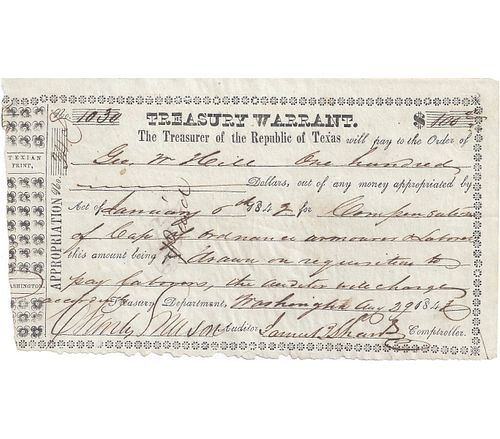 No. 1030
TREASURY WARRANT.
$ 100
The Treasurer of the Republic of Texas will pay to the Order of
Geo W Hill One hundred
Dollars, out of any money appropriated by
Act of January 184 for Compensation
of Cap of ordnance armourers & laborers
this amount being drawn on requisition to
pay laborers, the auditor will charge
accordingly Treasury Department, Washington Aug 29 184
Charles Mason Auditor James B Shaw Comptroller.
APPROPRIATION No.
TEXIAN
PRINT,
WASHINGTON